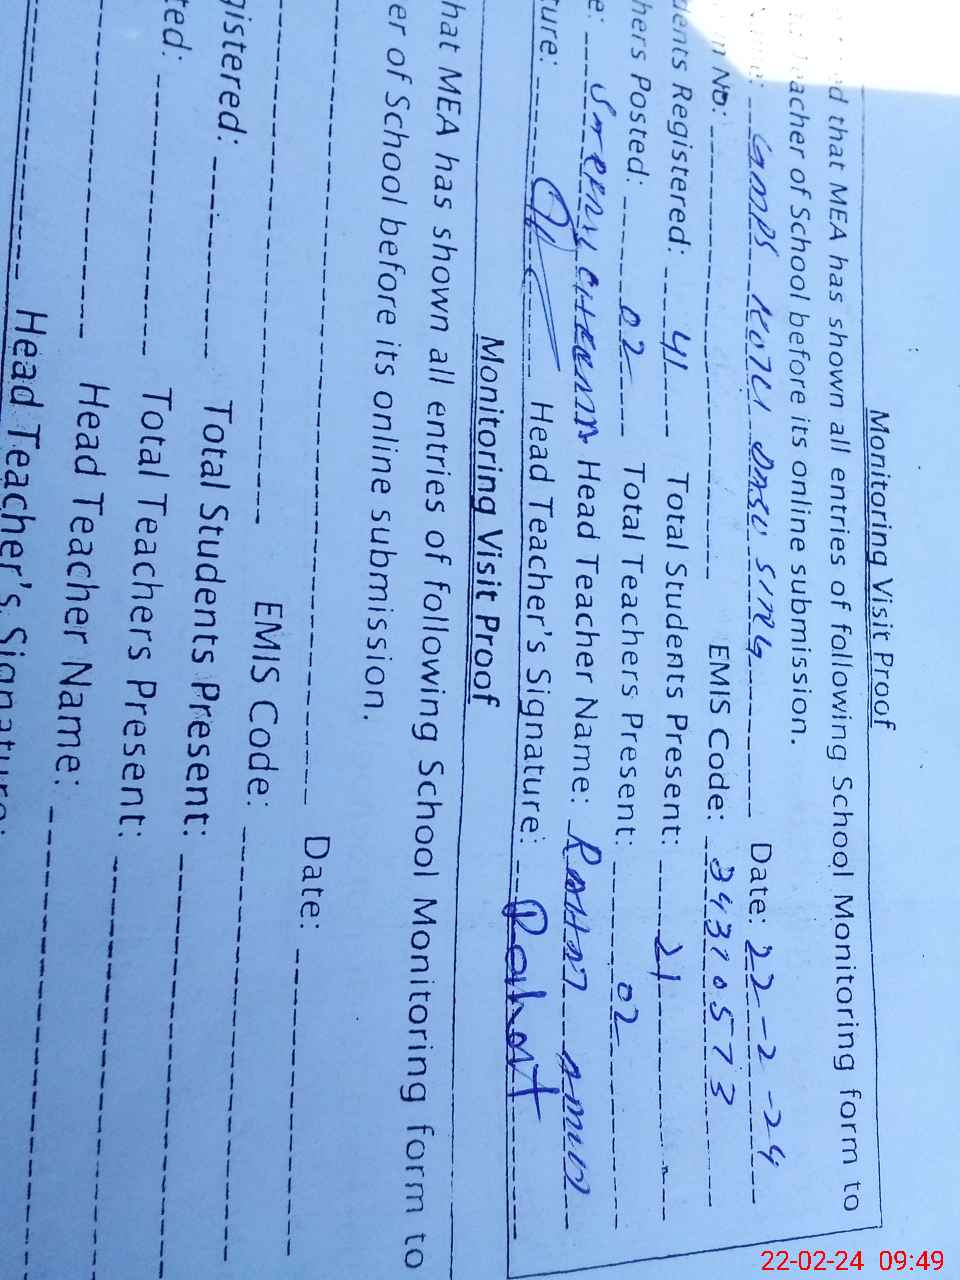 Monitoring Visit Proof
d that MEA has shown all entries of following School Monitoring form to
acher of School before its online submission.
GMPS KOTLI DASU SING Date: 22-2-24
No: EMIS Code: 34310573
dents Registered: 41 Total Students Present: 21
hers Posted: 02 Total Teachers Present: 02
e: Head Teacher Name: RAHAT AMIN
ture: Head Teacher's Signature: Rahat
Monitoring Visit Proof
hat MEA has shown all entries of following School Monitoring form to
er of School before its online submission.
Date:
EMIS Code:
gistered: Total Students Present:
ted: Total Teachers Present:
Head Teacher Name:
Head Teacher's Signature:
22-02-24 09:49